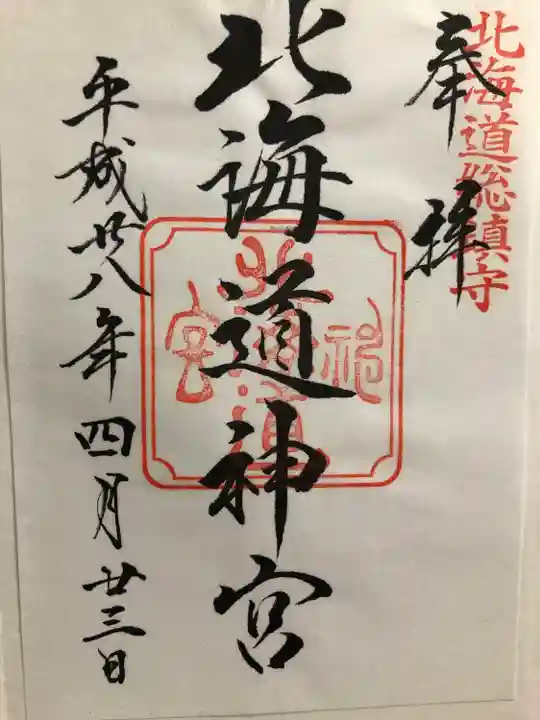 北海道総鎮守
奉拝
北海道神宮
平成廿八年四月廿三日
北海道神宮